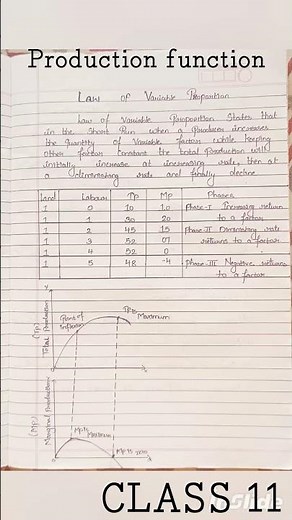 Production function
Law of Variable Proportion
Law of Variable Proportion States that
in the Short Run when a Producer increases
the quantity of Variable factors while keeping
other factor Constant the total Production will
initially increase at increasing rate, then at
a diminishing rate and finally decline
Land Labour Tp Mp Phases
1 0 10 10 Phase-I Increasing return
1 1 30 20 to a factor
1 2 45 15 Phase-II Diminishing rate
1 3 52 07 returns to a factor
1 4 52 0
1 5 48 -4 Phase-III Negative returns
to a factor
(TP)
Total Production
Point of
inflexion
TP is
Maximum
(MP)
Marginal Production
MP is
Maximum
MP is zero
CLASS 11